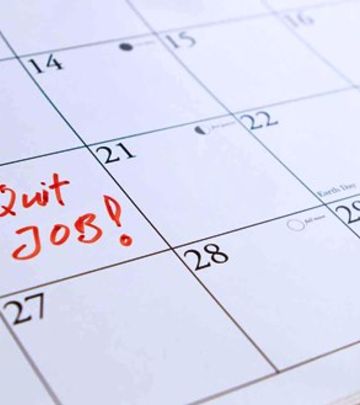 14
15
16
21
22
Earth Day
Quit
JOB!
28
29
27